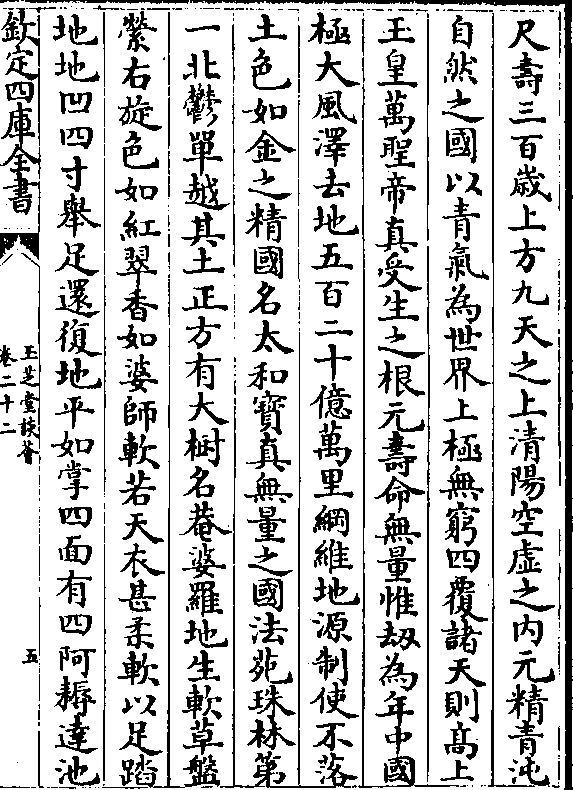 尺壽三百歲上方九天之上清陽空虛之内元精青沌
自然之國以青氣為世界上極無窮四覆諸天則髙上
玉皇萬聖帝真受生之根元壽命無量惟刼為年中國
極大風澤去地五百二十億萬里綱維地源制使不落
土色如金之精國名太和寶真無量之國法苑珠林第
一北鬱單越其土正方有大樹名菴婆羅地生軟草盤
縈右旋色如紅翠香如婆師軟若天衣甚柔軟以足踏
地地凹四寸舉足還復地平如掌四面有四阿耨達池
欽定四庫全書
玉芝堂談薈
卷二十二
五